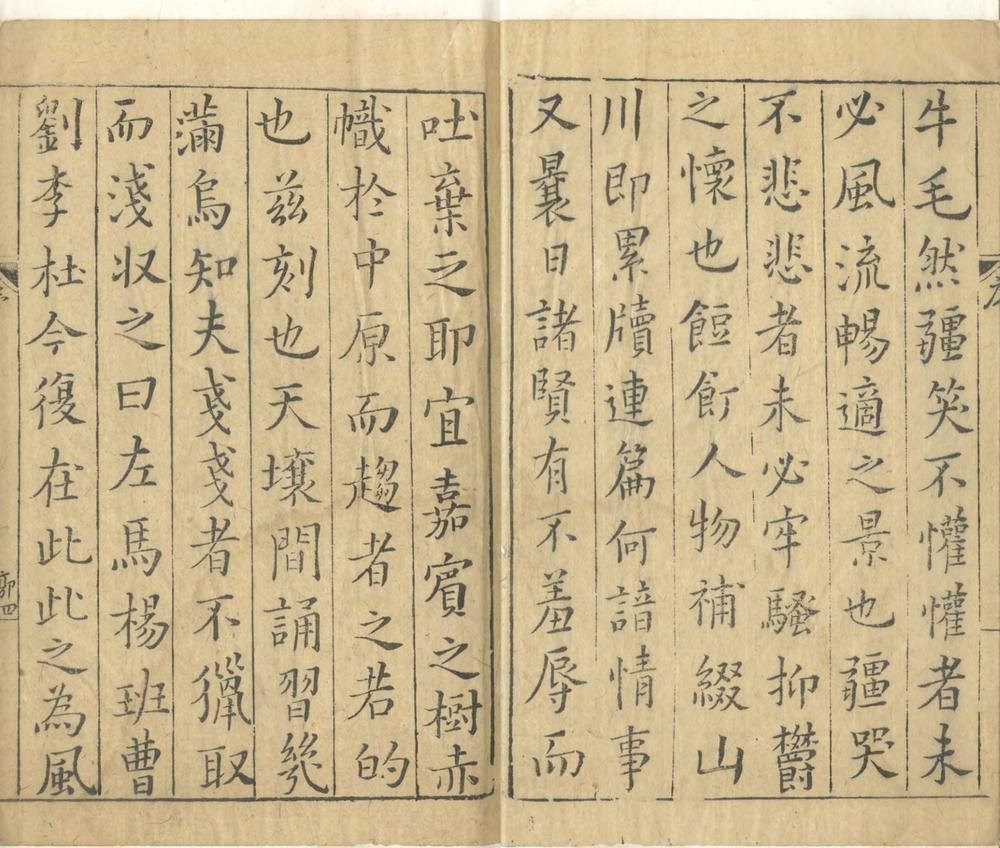 牛毛然疆笑不懽懽者未
必風流暢適之景也疆哭
不悲悲者未必牢騷抑欝
之懷也餖飣人物補綴山
川即累牘連篇何諳情事
又曩日諸賢有不羞辱而
吐棄之耶宜嘉賓之樹赤
幟於中原而趨者之若的
也兹刻也天壤間誦習㡬
滿烏知夫戔戔者不獵取
而淺収之曰左馬楊班曹
劉李杜今復在此此之為風
郭四